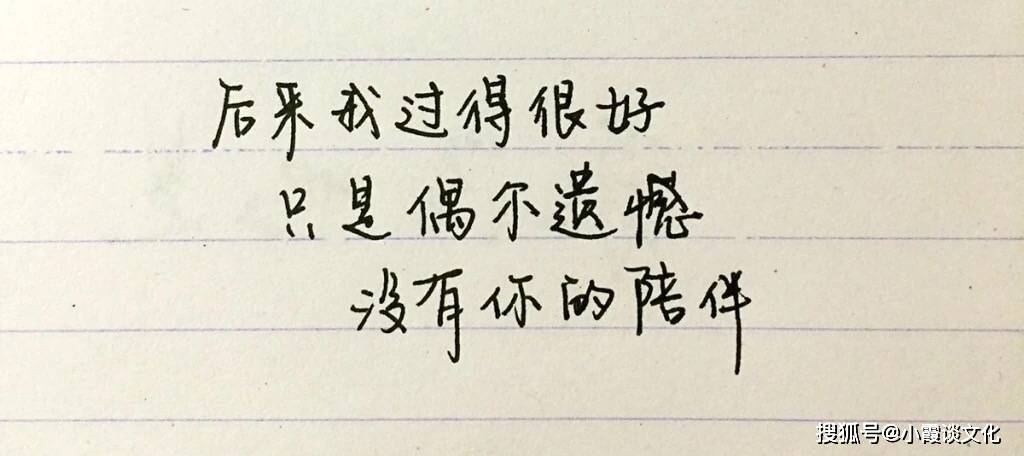 后来我过得很好
只是偶尔遗憾
没有你的陪伴
搜狐号@小霞谈文化